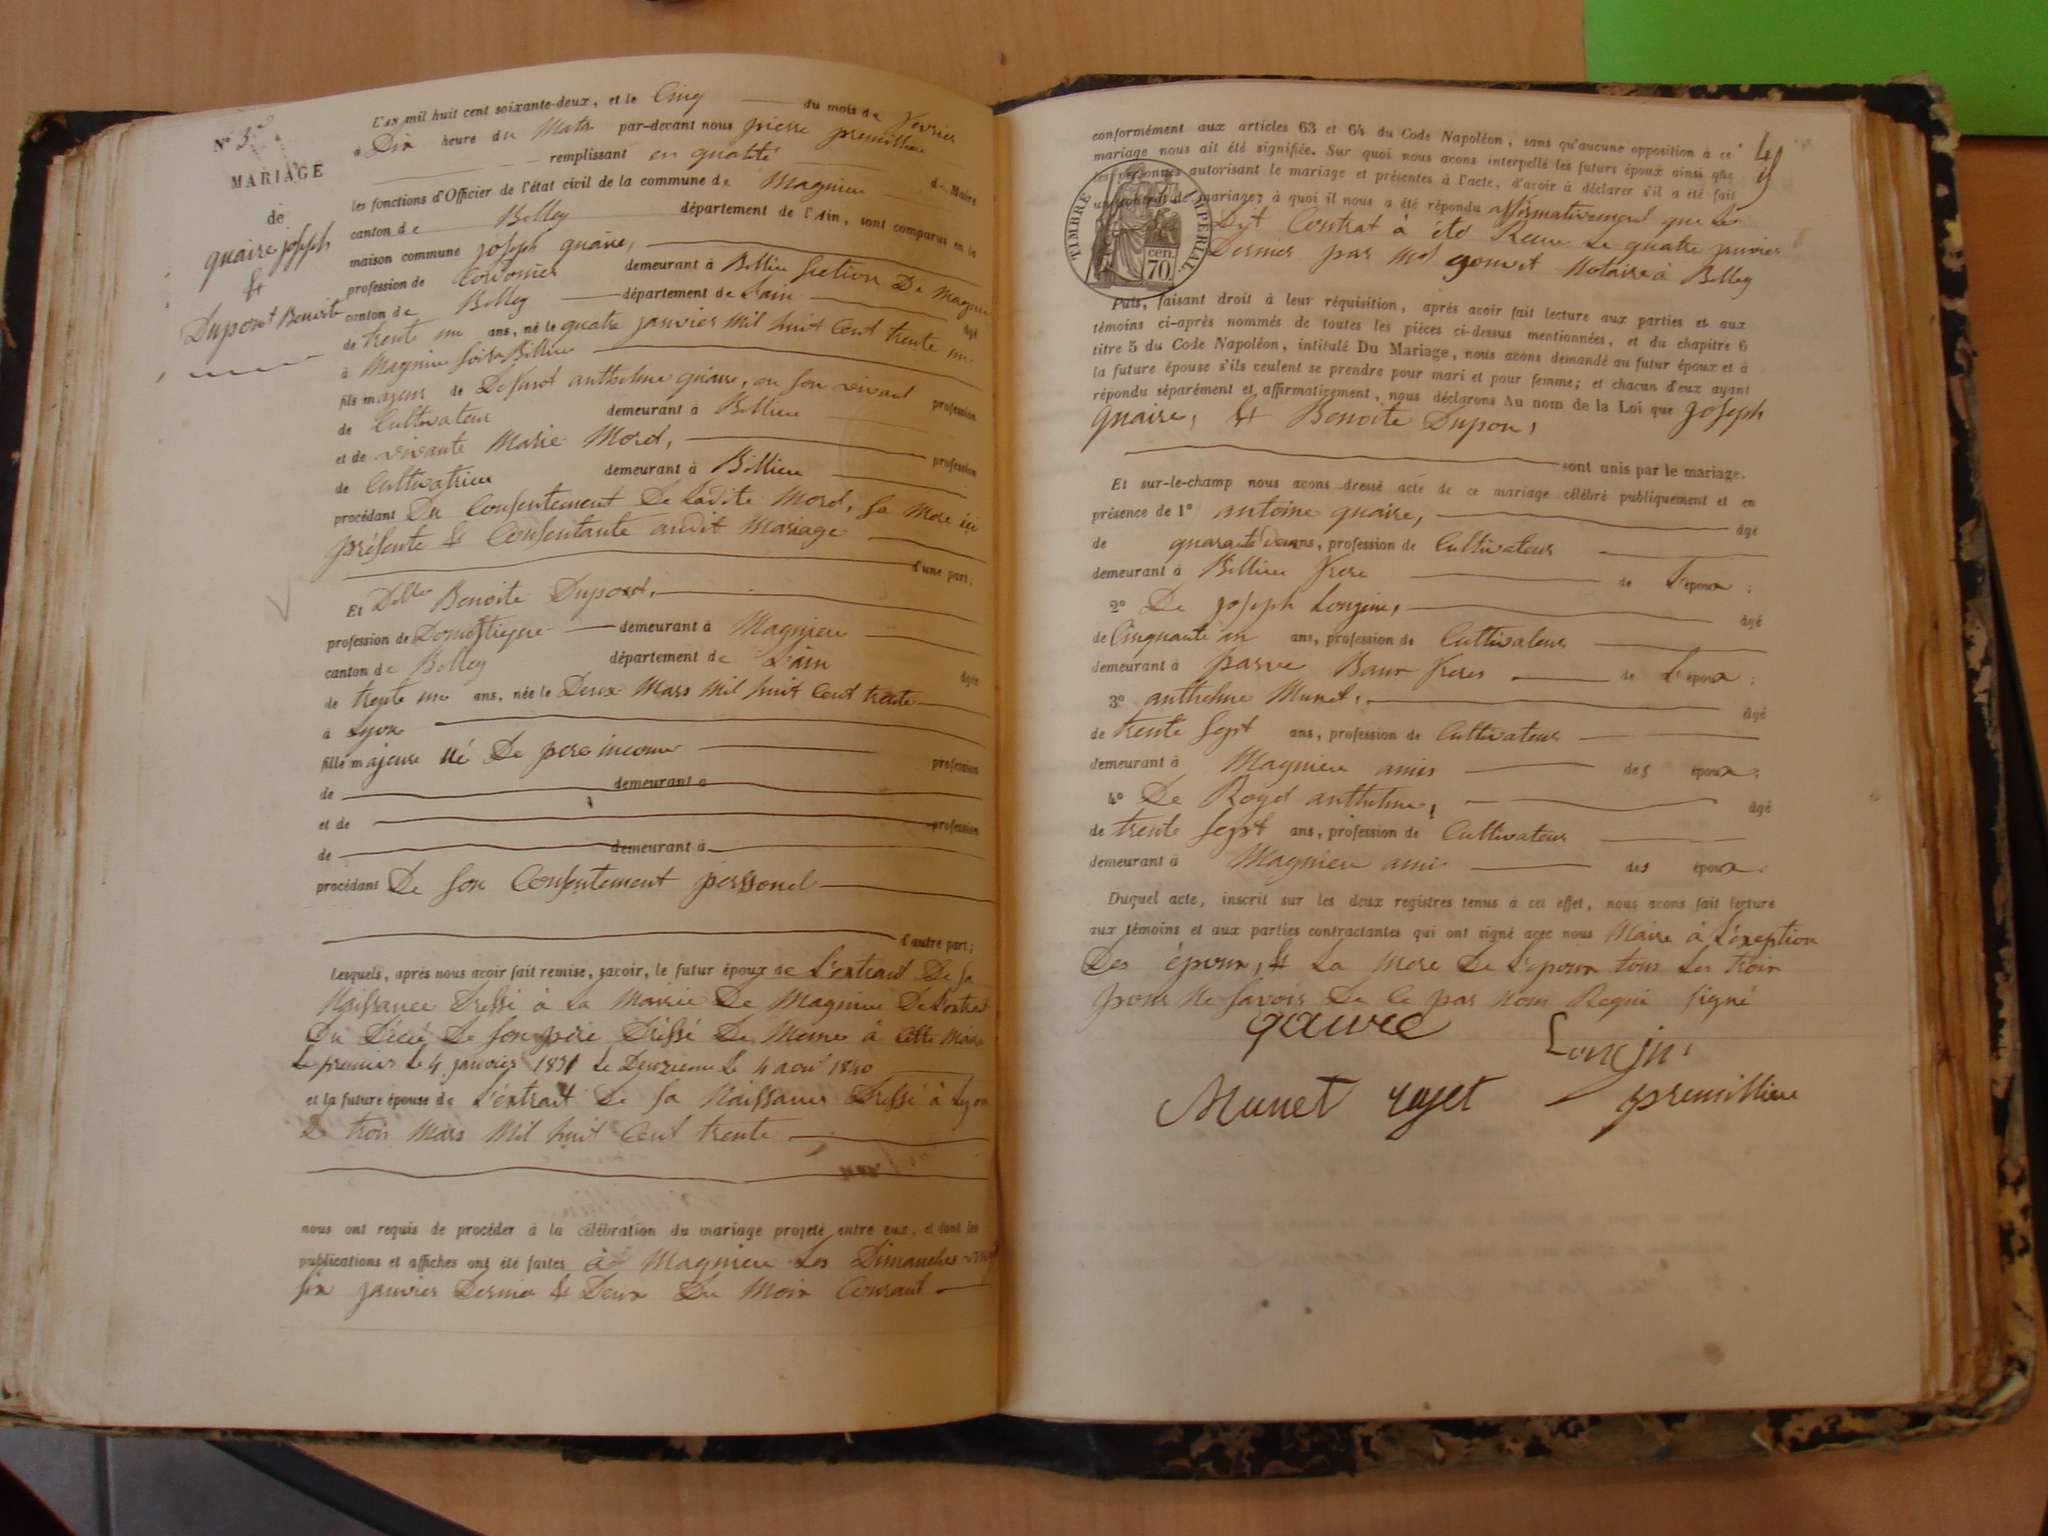 N° 3
MARIAGE
de
quaire joseph
&
Dupont Benoite
L'an mil huit cent soixante-deux, et le Cinq du mois de fevrier
à Dix heure du Matin par-devant nous pierre premillieu
remplissant en qualité de Maire
les fonctions d'Officier de l'état civil de la commune de Magnieu
canton de Belley département de l'Ain, sont comparus en la
maison commune joseph quaire,
profession de Cordonier demeurant à Billieu section De Magnieu
canton de Belley département de Lain âgé
de trente un ans, né le quatre janvier mil huit Cent trente un
à Magnieu Billieu
fils majeur de Defunt anthelme quaire, en son vivant profession
de Cultivateur demeurant à Billieu
et de vivante Marie Morel, profession
de Cultivatrice demeurant à Billieu
procédant Du Consentement De Ladite Morel, sa Mere ici
présente & Consentante audit Mariage
d'une part;
Et Delle Benoite Dupont,
profession de Domestique demeurant à Magnieu
canton de Belley département de Lain
âgée
de trente un ans, née le Deux Mars Mil huit Cent trente
à Lyon
fille majeure né De pere inconnu profession
de demeurant à
et de profession
de demeurant à
procédant De son Consentement personel
d'autre part;
Lesquels, après nous avoir fait remise, savoir, le futur époux de L'extrait De sa
Naissance Dressé à La Mairie De Magnieu De L'extrait
Du Décé De son pere Dréssé De Meme à cette Mairie
Le premier Le 4 janvier 1831 Le Deuxieme Le 4 aout 1840
et la future épouse de L'extrait De sa Naissance Dressé à Lyon
Le trois Mars Mil huit Cent trente
nous ont requis de procéder à la célébration du mariage projeté entre eux, et dont les
publications et affiches ont été faites à Magnieu Les Dimanches vingt
six janvier Dernier & Deux Du Mois Courant
conformément aux articles 63 et 64 du Code Napoléon, sans qu'aucune opposition à ce
mariage nous ait été signifiée. Sur quoi nous avons interpellé les futurs époux ainsi que
les personnes autorisant le mariage et présentes à l'acte, d'avoir à déclarer s'il a été fait
un contrat de mariage; à quoi il nous a été répondu affirmativement que Le
Dit Contrat à été Recu Le quatre janvier
Dernier par Notaire à Belley
TIMBRE IMPÉRIAL
70 cen.
Puis, faisant droit à leur réquisition, après avoir fait lecture aux parties et aux
témoins ci-après nommés de toutes les pièces ci-dessus mentionnées, et du chapitre 6
titre 5 du Code Napoléon, intitulé Du Mariage, nous avons demandé au futur époux et à
la future épouse s'ils veulent se prendre pour mari et pour femme; et chacun d'eux ayant
répondu séparément et affirmativement, nous déclarons Au nom de la Loi que joseph
quaire, & Benoite Dupon,
sont unis par le mariage.
Et sur-le-champ nous avons dressé acte de ce mariage célébré publiquement et en
présence de 1° antoine quaire, âgé
de quarante deux ans, profession de Cultivateur
demeurant à Billieu frere de L'époux;
2° De joseph Longin, âgé
de Cinquante un ans, profession de Cultivateur
demeurant à parve Beau frere de L'époux;
3° anthelme Munet, âgé
de trente sept ans, profession de Cultivateur
demeurant à Magnieu amis des époux;
4° De Royet anthelme, âgé
de trente sept ans, profession de Cultivateur
demeurant à Magnieu ami des époux.
Duquel acte, inscrit sur les deux registres tenus à cet effet, nous avons fait lecture
aux témoins et aux parties contractantes qui ont signé avec nous Maire à L'exeption
Des époux, & La Mere De L'epoux tous Les trois
pour Ne savoir De Ce par nous Requi signé
Longin
Munet premillieu